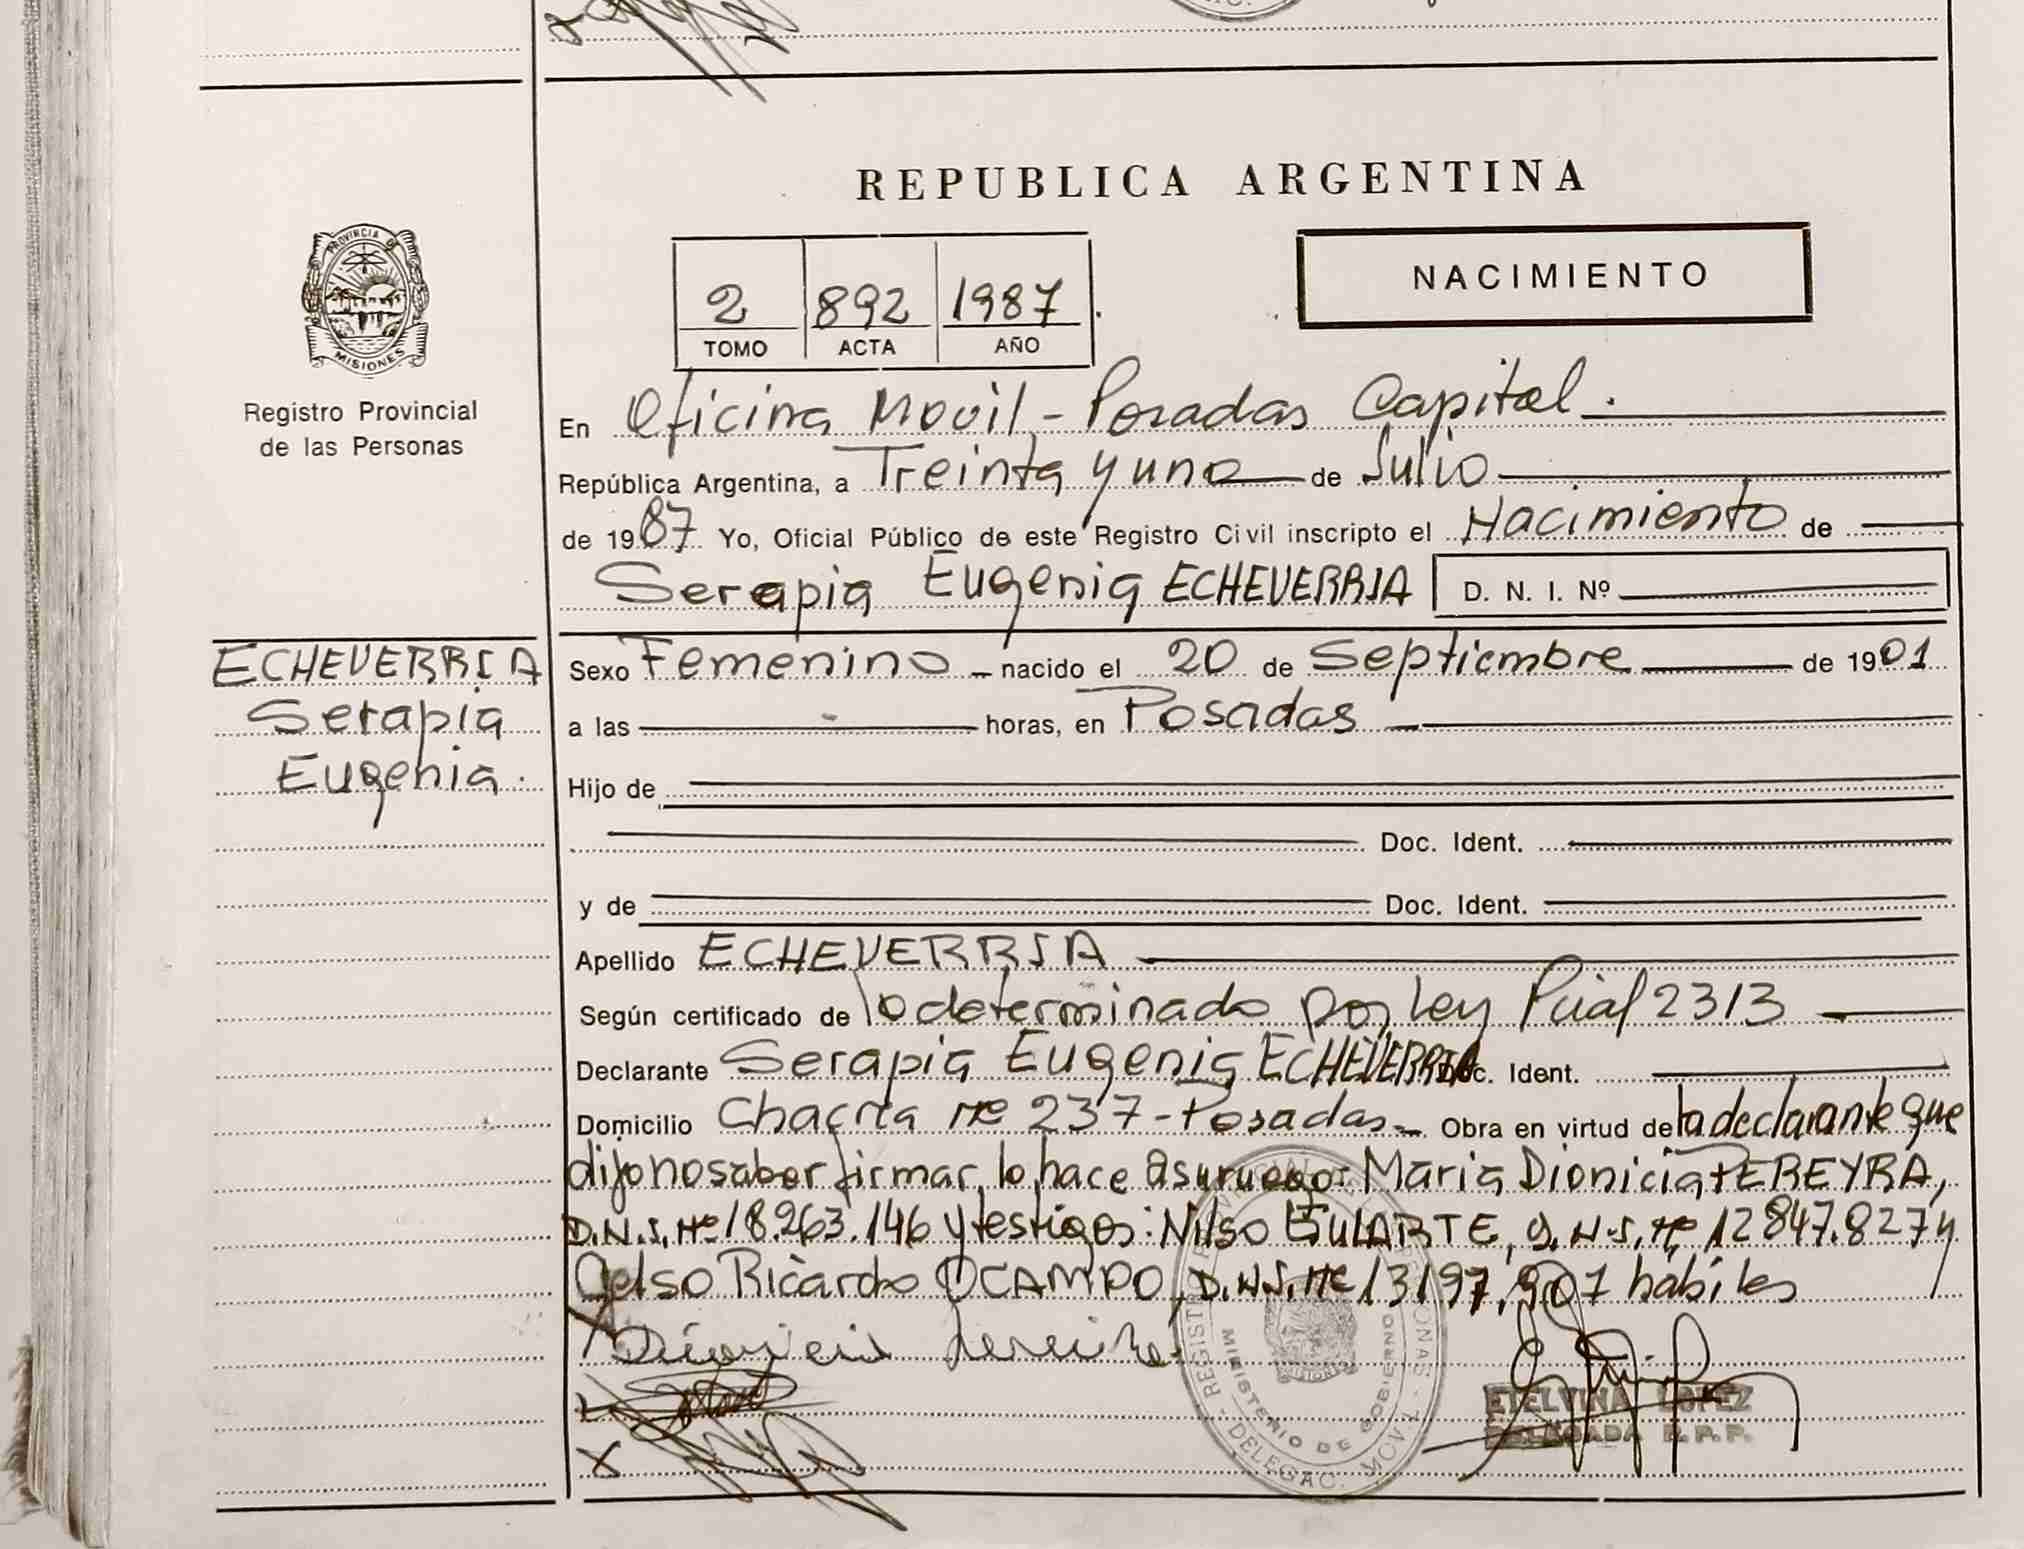 REPUBLICA ARGENTINA
PROVINCIA DE
MISIONES
Registro Provincial
de las Personas
NACIMIENTO
2 892 1987
TOMO ACTA AÑO
En Oficina Movil - Posadas Capital.
República Argentina, a Treinta y uno de Julio
de 1987 Yo, Oficial Público de este Registro Civil inscripto el Nacimiento de
Serapia Eugenia ECHEVERRIA D. N. I. Nº
ECHEVERRIA
Serapia
Eugenia.
Sexo Femenino nacido el 20 de Septiembre de 1901
a las horas, en Posadas
Hijo de
Doc. Ident.
y de Doc. Ident.
Apellido ECHEVERRIA
Según certificado de lo determinado por Ley Pcial 2313
Declarante Serapia Eugenia ECHEVERRIA Doc. Ident.
Domicilio Chacra Nº 237 - Posadas. Obra en virtud de la declarante que
dijo no saber firmar, lo hace a su ruego: Maria Dionicia PEREYRA,
D.N.I. Nº 18.263.146 y testigos: Nilso GULARTE, D.N.I. Nº 12847.827 y
Celso Ricardo OCAMPO, D.N.I. Nº 13197.907 hábiles
MINISTERIO DE GOBIERNO
MISIONES
ETELVINA LOPEZ
DELEGADA R.P.P.